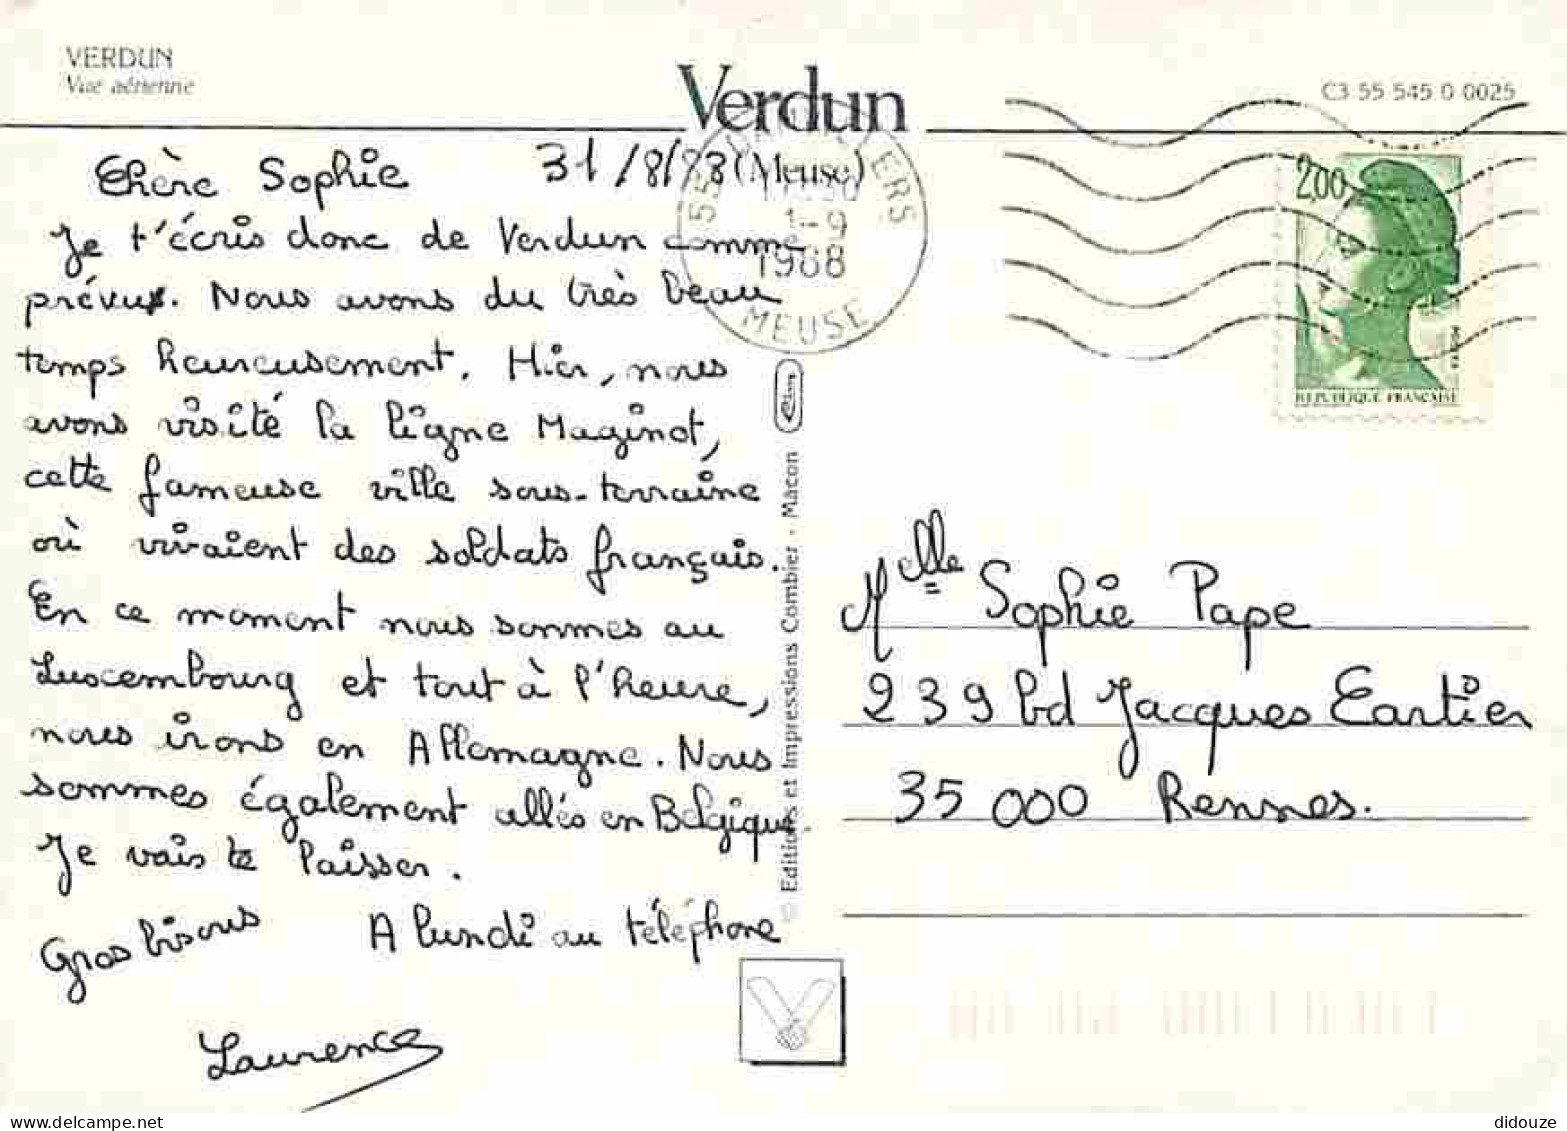 VERDUN
Vue aérienne
Verdun
(Meuse)
C3 55 545 0 0025
31/8/88
Chère Sophie
Je t'écris donc de Verdun comme
prévu. Nous avons du très beau
temps heureusement. Hier, nous
avons visité la ligne Maginot,
cette fameuse ville sous-terraine
où vivaient des soldats français.
En ce moment nous sommes au
Luxembourg et tout à l'heure,
nous irons en Allemagne. Nous
sommes également allés en Belgique.
Je vais te laisser.
Gros bisous A lundi au téléphone
Laurence
55
ERS
1-9
1988
MEUSE
2,00
POSTES
REPUBLIQUE FRANÇAISE
© Editions et Impressions Combier - Macon
Melle Sophie Pape
239 bd Jacques Cartier
35 000 Rennes.
didouze